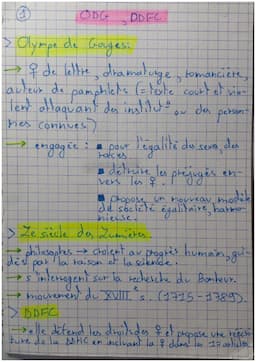 ①
ODG, DDFC
> Olympe de Gouges:
→ ♀ de lettre, dramaturge, romancière,
auteur de pamphlets (= texte court et vio-
lent attaquant des institut° ou des person-
nes connues)
→ engagée : ▪ pour l'égalité des sexes, des
races
▪ détruire les préjugés en-
vers les ♀.
▪ propose un nouveau modèle
de société égalitaire, harmo-
nieuse.
> Le siècle des Lumières
→ philosophes → croient au progrès humain, gui-
dés par la raison et la science.
→ s'interrogent sur la recherche du Bonheur.
→ mouvement du XVIII s. (1715-1789).
> DDFC
→ elle défend les droits des ♀ et propose une réécri-
ture de la DDHC en incluant la ♀ dans le 1er article